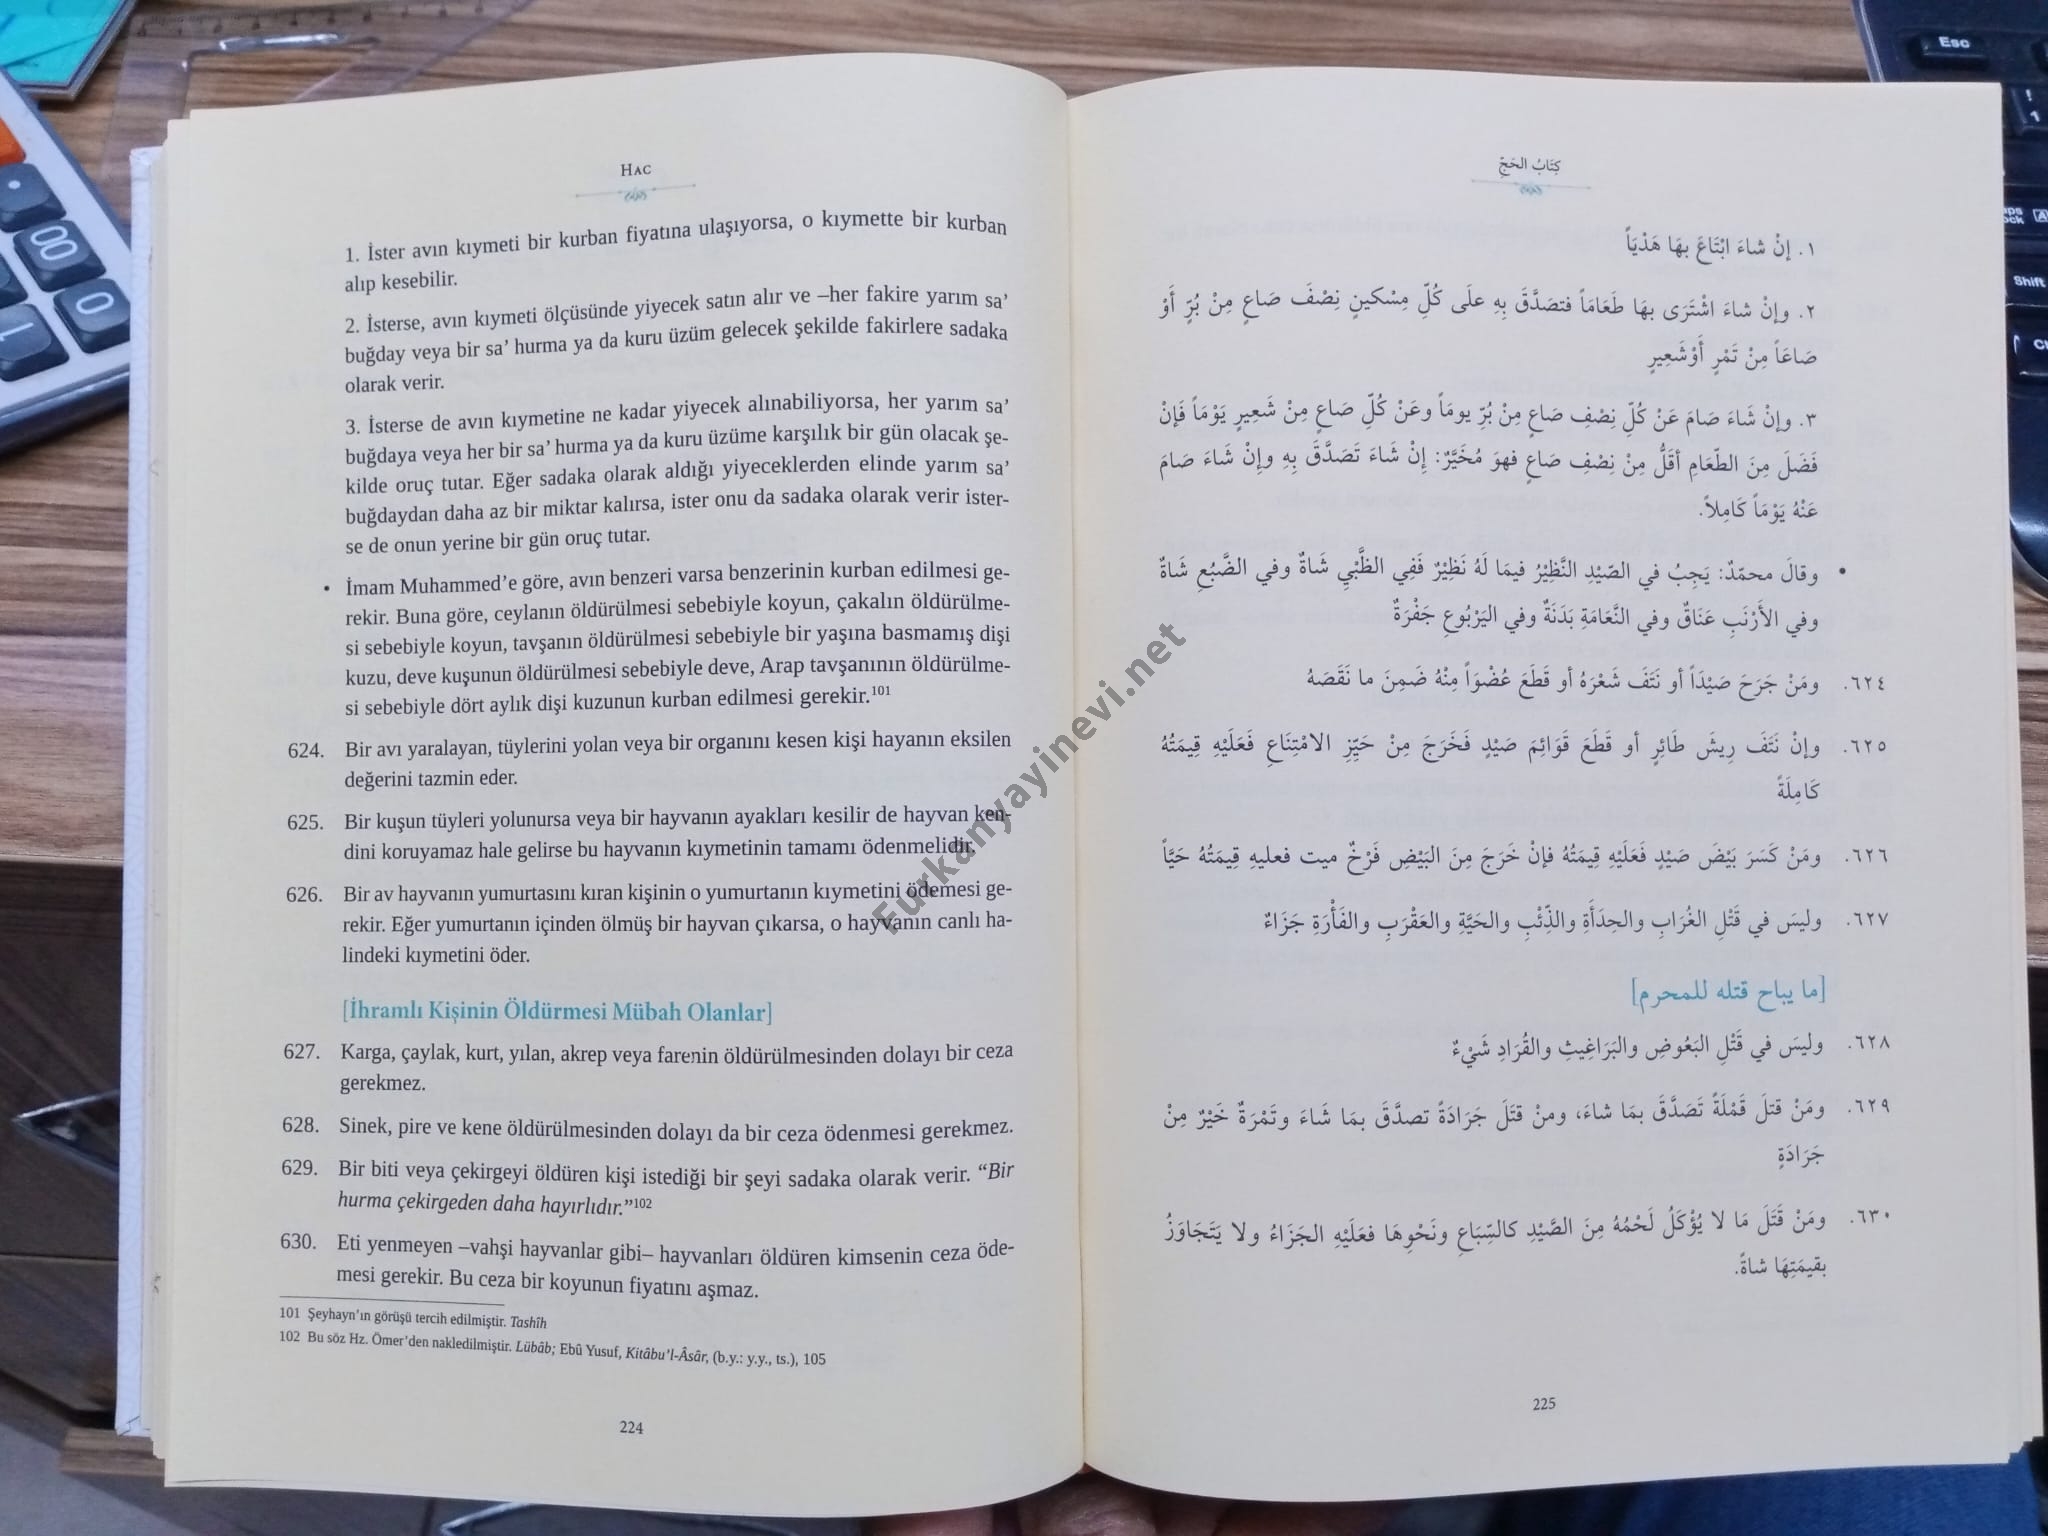 HAC
1. İster avın kıymeti bir kurban fiyatına ulaşıyorsa, o kıymette bir kurban
alıp kesebilir.
2. İsterse, avın kıymeti ölçüsünde yiyecek satın alır ve –her fakire yarım sa’
buğday veya bir sa’ hurma ya da kuru üzüm gelecek şekilde fakirlere sadaka
olarak verir.
3. İsterse de avın kıymetine ne kadar yiyecek alınabiliyorsa, her yarım sa’
buğdaya veya her bir sa’ hurma ya da kuru üzüme karşılık bir gün olacak şe-
kilde oruç tutar. Eğer sadaka olarak aldığı yiyeceklerden elinde yarım sa’
buğdaydan daha az bir miktar kalırsa, ister onu da sadaka olarak verir ister-
se de onun yerine bir gün oruç tutar.
• İmam Muhammed’e göre, avın benzeri varsa benzerinin kurban edilmesi ge-
rekir. Buna göre, ceylanın öldürülmesi sebebiyle koyun, çakalın öldürülme-
si sebebiyle koyun, tavşanın öldürülmesi sebebiyle bir yaşına basmamış dişi
kuzu, deve kuşunun öldürülmesi sebebiyle deve, Arap tavşanının öldürülme-
si sebebiyle dört aylık dişi kuzunun kurban edilmesi gerekir.101
624. Bir avı yaralayan, tüylerini yolan veya bir organını kesen kişi hayanın eksilen
değerini tazmin eder.
625. Bir kuşun tüyleri yolunursa veya bir hayvanın ayakları kesilir de hayvan ken-
dini koruyamaz hale gelirse bu hayvanın kıymetinin tamamı ödenmelidir.
626. Bir av hayvanın yumurtasını kıran kişinin o yumurtanın kıymetini ödemesi ge-
rekir. Eğer yumurtanın içinden ölmüş bir hayvan çıkarsa, o hayvanın canlı ha-
lindeki kıymetini öder.
[İhramlı Kişinin Öldürmesi Mübah Olanlar]
627. Karga, çaylak, kurt, yılan, akrep veya farenin öldürülmesinden dolayı bir ceza
gerekmez.
628. Sinek, pire ve kene öldürülmesinden dolayı da bir ceza ödenmesi gerekmez.
629. Bir biti veya çekirgeyi öldüren kişi istediği bir şeyi sadaka olarak verir. “Bir
hurma çekirgeden daha hayırlıdır.”102
630. Eti yenmeyen –vahşi hayvanlar gibi– hayvanları öldüren kimsenin ceza öde-
mesi gerekir. Bu ceza bir koyunun fiyatını aşmaz.
101 Şeyhayn’ın görüşü tercih edilmiştir. Tashîh
102 Bu söz Hz. Ömer’den nakledilmiştir. Lübâb; Ebû Yusuf, Kitâbu’l-Âsâr, (b.y.: y.y., ts.), 105
224
كِتَابُ الحَجّ
١. إنْ شاءَ ابْتَاعَ بهَا هَدْيَاً
٢. وإنْ شاءَ اشْتَرَى بهَا طَعَامَاً فتصَدَّقَ بِهِ علَى كُلِّ مِسْكينٍ نِصْفَ صَاعٍ مِنْ بُرٍّ أَوْ
صَاعَاً مِنْ تَمْرٍ أَوْشَعِيرٍ
٣. وإنْ شَاءَ صَامَ عَنْ كُلِّ نِصْفِ صَاعٍ مِنْ بُرٍّ يومَاً وعَنْ كُلِّ صَاعٍ مِنْ شَعِيرٍ يَوْمَاً فَإنْ
فَضَلَ مِنَ الطّعَامِ أقَلُّ مِنْ نِصْفِ صَاعٍ فهوَ مُخَيَّرٌ: إنْ شَاءَ تَصَدَّقَ بِهِ وإنْ شَاءَ صَامَ
عَنْهُ يَوْمَاً كَامِلاً.
• وقالَ محمّدٌ: يَجِبُ في الصّيْدِ النَّظِيْرُ فيمَا لَهُ نَظِيْرٌ فَفِي الظَّبْيِ شَاةٌ وفي الضَّبُعِ شَاةٌ
وفي الأَرْنَبِ عَنَاقٌ وفي النَّعَامَةِ بَدَنَةٌ وفي اليَرْبُوعِ جَفْرَةٌ
٦٢٤. ومَنْ جَرَحَ صَيْدَاً أو نَتَفَ شَعْرَهُ أو قَطَعَ عُضْوَاً مِنْهُ ضَمِنَ ما نَقَصَهُ
٦٢٥. وإنْ نَتَفَ رِيشَ طَائِرٍ أو قَطَعَ قَوَائِمَ صَيْدٍ فَخَرَجَ مِنْ حَيِّزِ الامْتِنَاعِ فَعَلَيْهِ قِيمَتُهُ
كَامِلَةً
٦٢٦. ومَنْ كَسَرَ بَيْضَ صَيْدٍ فَعَلَيْهِ قِيمَتُهُ فإنْ خَرَجَ مِنَ البَيْضِ فَرْخٌ ميت فعليهِ قِيمَتُهُ حَيَّاً
٦٢٧. وليسَ في قَتْلِ الغُرَابِ والحِدَأَةِ والذِّئْبِ والحَيَّةِ والعَقْرَبِ والفَأْرَةِ جَزَاءٌ
[ما يباح قتله للمحرم]
٦٢٨. وليسَ في قَتْلِ البَعُوضِ والبَرَاغِيثِ والقُرَادِ شَيْءٌ
٦٢٩. ومَنْ قتلَ قَمْلَةً تَصَدَّقَ بمَا شاءَ، ومنْ قتَلَ جَرَادَةً تصدَّقَ بمَا شَاءَ وتَمْرَةٌ خَيْرٌ مِنْ
جَرَادَةٍ
٦٣٠. ومَنْ قَتَلَ مَا لا يُؤْكَلُ لَحْمُهُ مِنَ الصَّيْدِ كالسِّبَاعِ ونَحْوِهَا فعَلَيْهِ الجَزَاءُ ولا يَتَجَاوَزُ
بقيمَتِهَا شاةً.
225
Furkanyayinevi.net
Esc
Shift
00
0